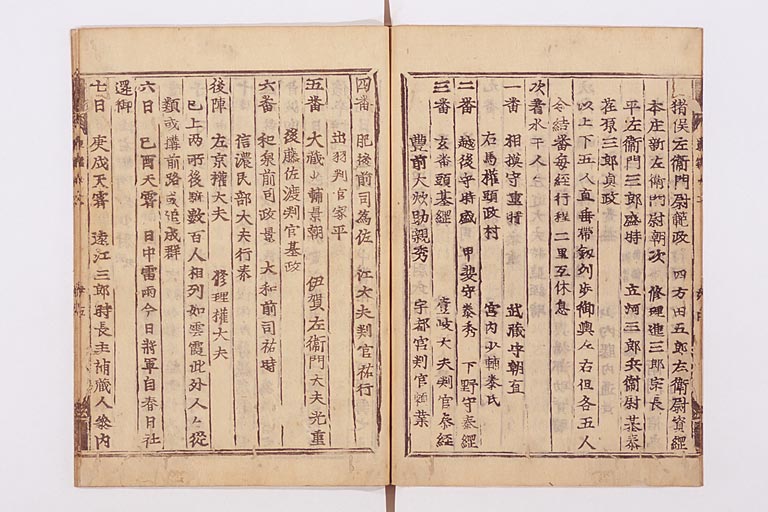 猪俣左衛門尉範政 四方田五郎左衛門尉資綱
本庄新左衛門尉朝次 修理進三郎宗長
平左衛門三郎盛時 立河三郎兵衛尉基泰
荏原三郎貞政
以上下五人直垂帶劔列步御輿左右但各五人
令結番每經行程二里互休息
次着水干人々
一番 相摸守重時 武藏守朝直
右馬權頭政村 宮内少輔泰氏
二番 越後守時盛 甲斐守泰秀 下野守泰綱
三番 玄番頭基綱 大夫判官泰綱
豐前大炊助親秀 宇都宮判官
四番 肥後前司為佐 江大夫判官
出羽判官家平
五番 大藏少輔景朝 伊賀左衛門大夫光重
後藤佐渡判官基政
六番 和泉前司政景 大和前司祐時
信濃民部大夫行泰
後陣 左京權大夫 修理權大夫
已上兩所後騎數百人相列如雲霞此外人々從
類或溝前路或追成群
六日 己酉天霽 日中雷雨今日將軍自春日社
還御
七日 庚戌天霽 遠江三郎時長主補藏人參内